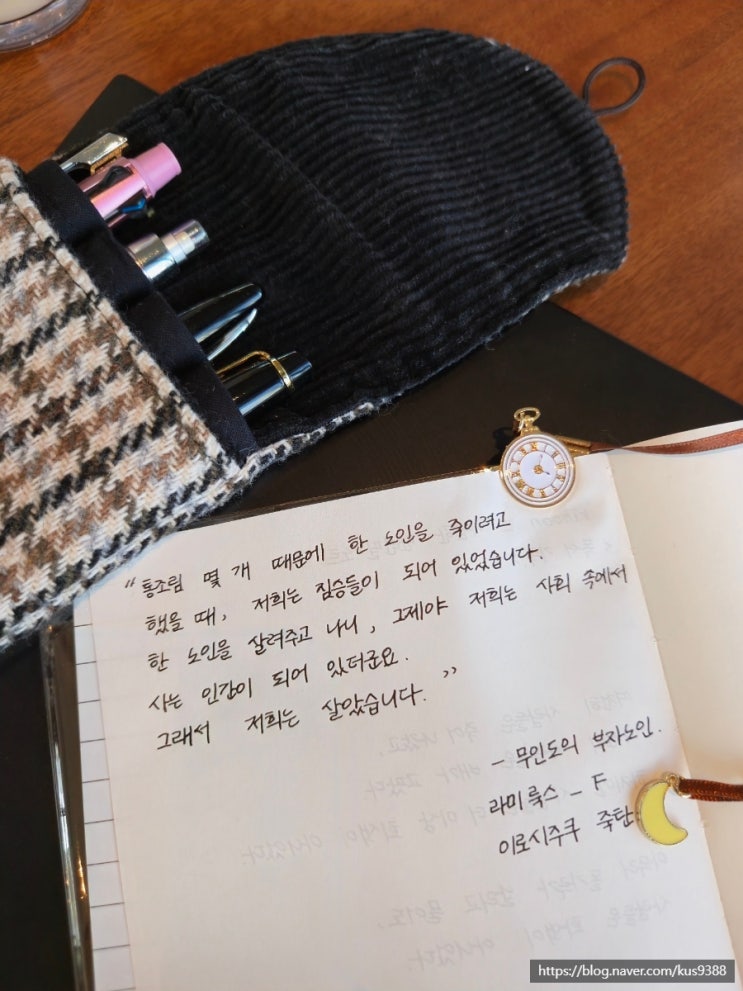 “ 통조림 몇 개 때문에 한 노인을 죽이려고
했을 때, 저희는 짐승들이 되어 있었습니다.
한 노인을 살려주고 나니, 그제야 저희는 사회 속에서
사는 인간이 되어 있더군요.
그래서 저희는 살았습니다. ”
- 무인도의 부자노인.
라미 룩스 - F
이로시주쿠 죽탄
https://blog.naver.com/kus9388